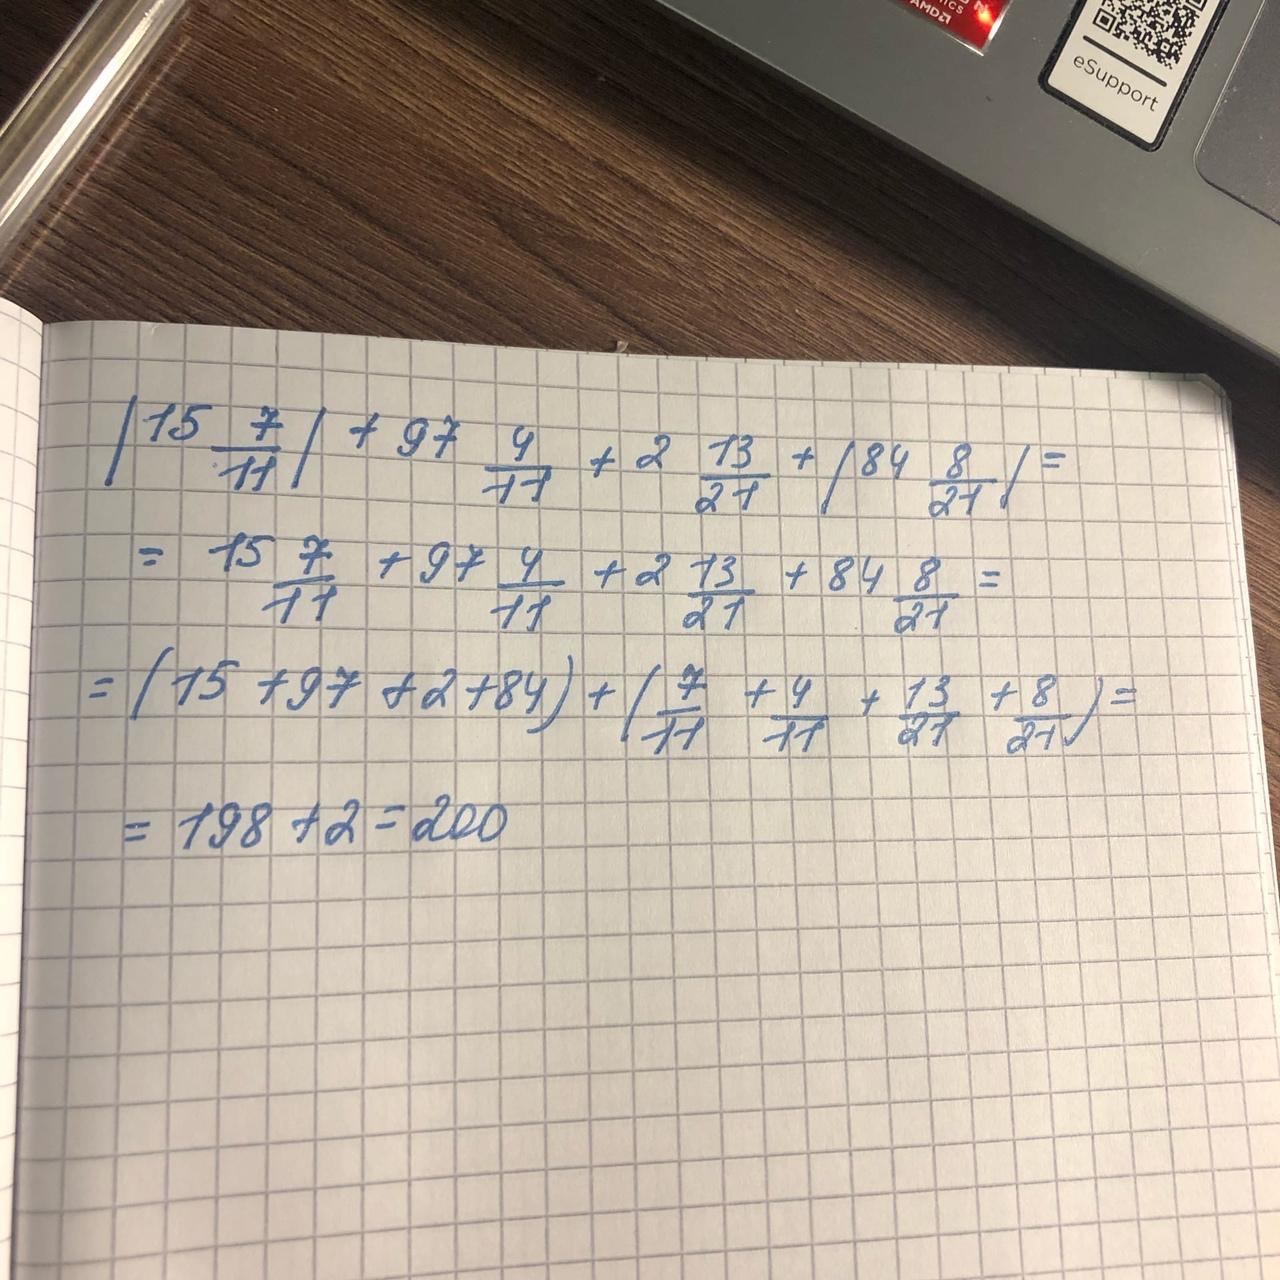 AMD
eSupport
|15 7/11| + 97 4/11 + 2 13/21 + |84 8/21| =
= 15 7/11 + 97 4/11 + 2 13/21 + 84 8/21 =
= (15 + 97 + 2 + 84) + (7/11 + 4/11 + 13/21 + 8/21) =
= 198 + 2 = 200